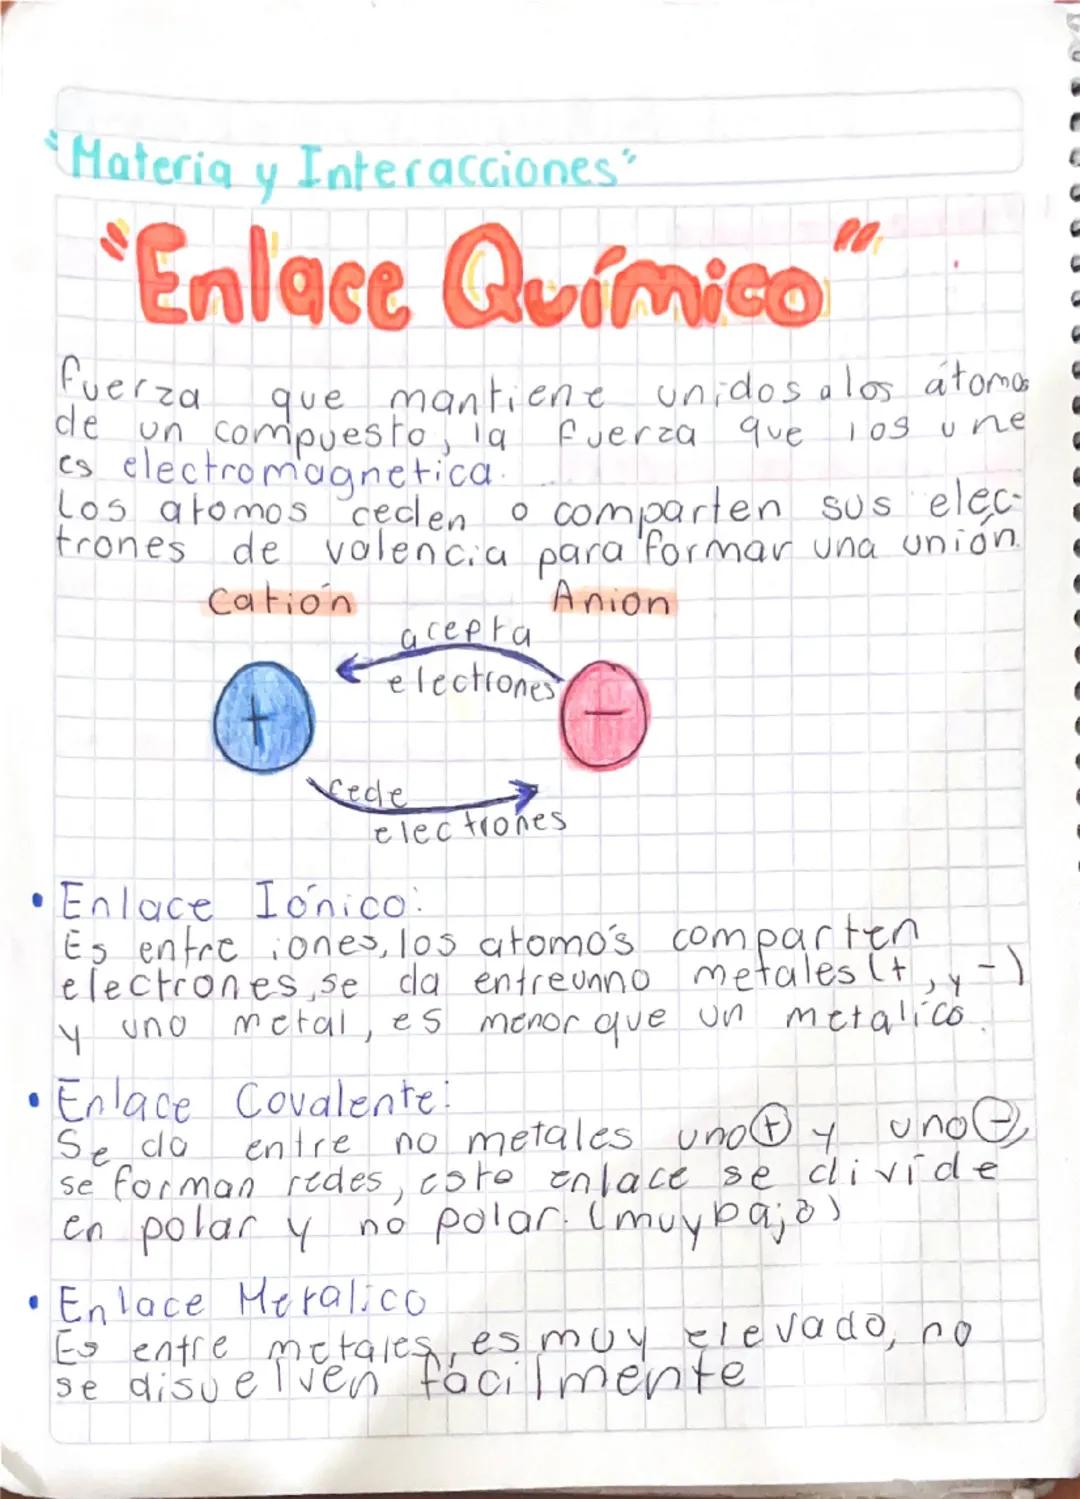 "Materia y Interacciones"
"Enlace Químico"
fuerza que mantiene unidos a los átomos
de un compuesto, la fuerza que los une
es electromagnetica.
Los atomos ceden o comparten sus elec-
trones de valencia para formar una unión.
Catión Anion
acepta
electrones
+ -
cede
electrones
• Enlace Iónico:
Es entre iones, los atomo's comparten
electrones, se da entre unno metales (+, y -)
y uno metal, es menor que un metalico.
• Enlace Covalente:
Se da entre no metales uno (+) y uno (-),
se forman redes, esto enlace se divide
en polar y no polar. (muy bajo)
• Enlace Metalico
Es entre metales, es muy elevado, no
se disuelven facilmente